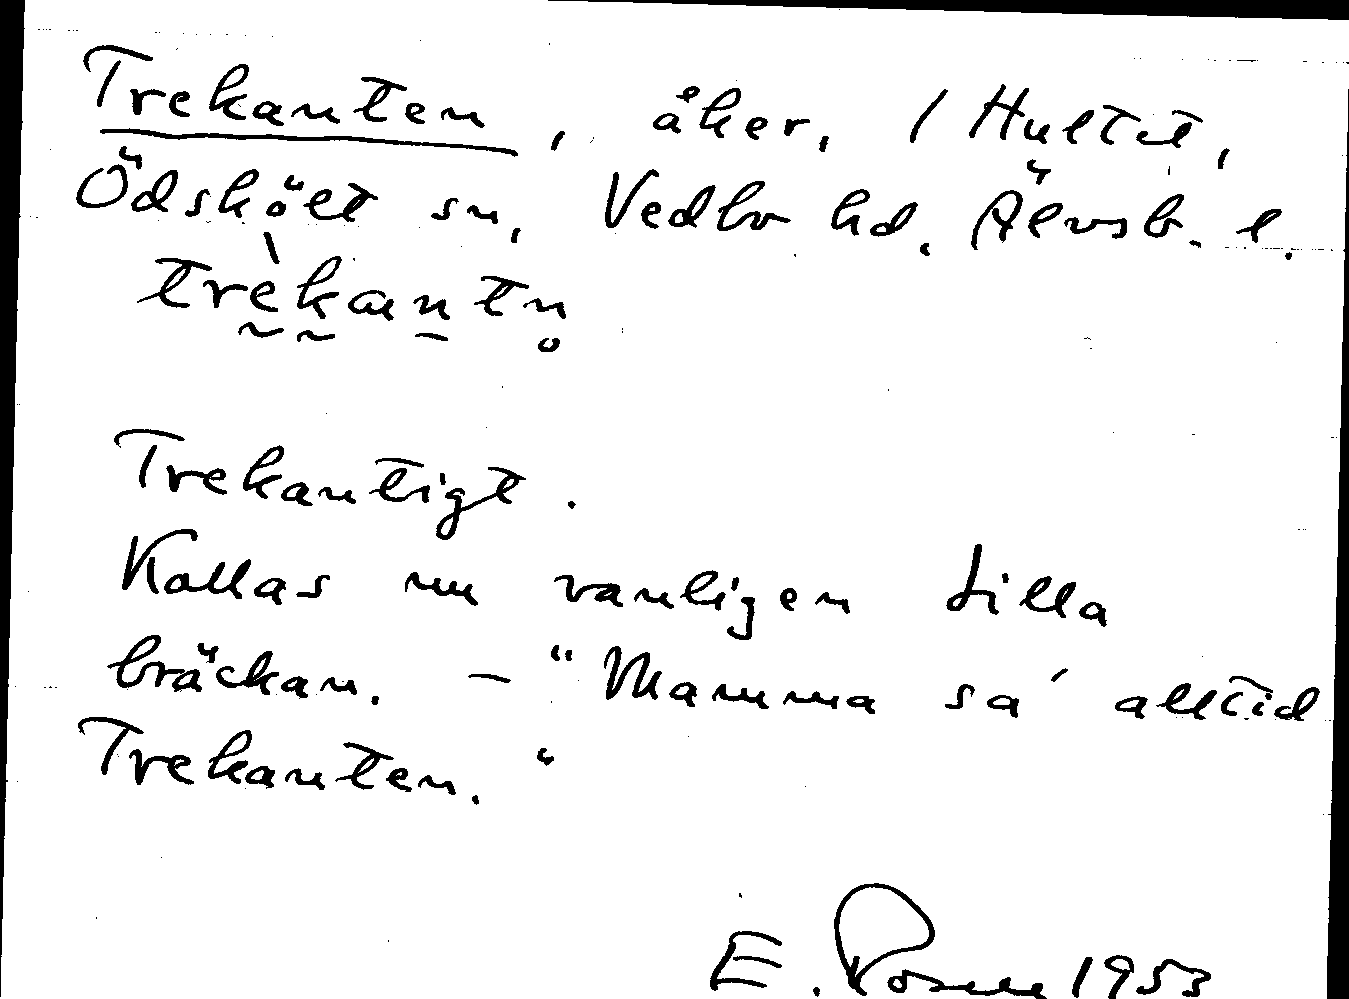 Trekanten, åker, / Hultet,
Ödskölt sn, Vedbo hd. Älvsb. l.
trèkantn̥
Trekantigt.
Kallas nu vanligen Lilla
bräckan. - "Mamma sa' alltid
Trekanten."
E. Rosell 1953